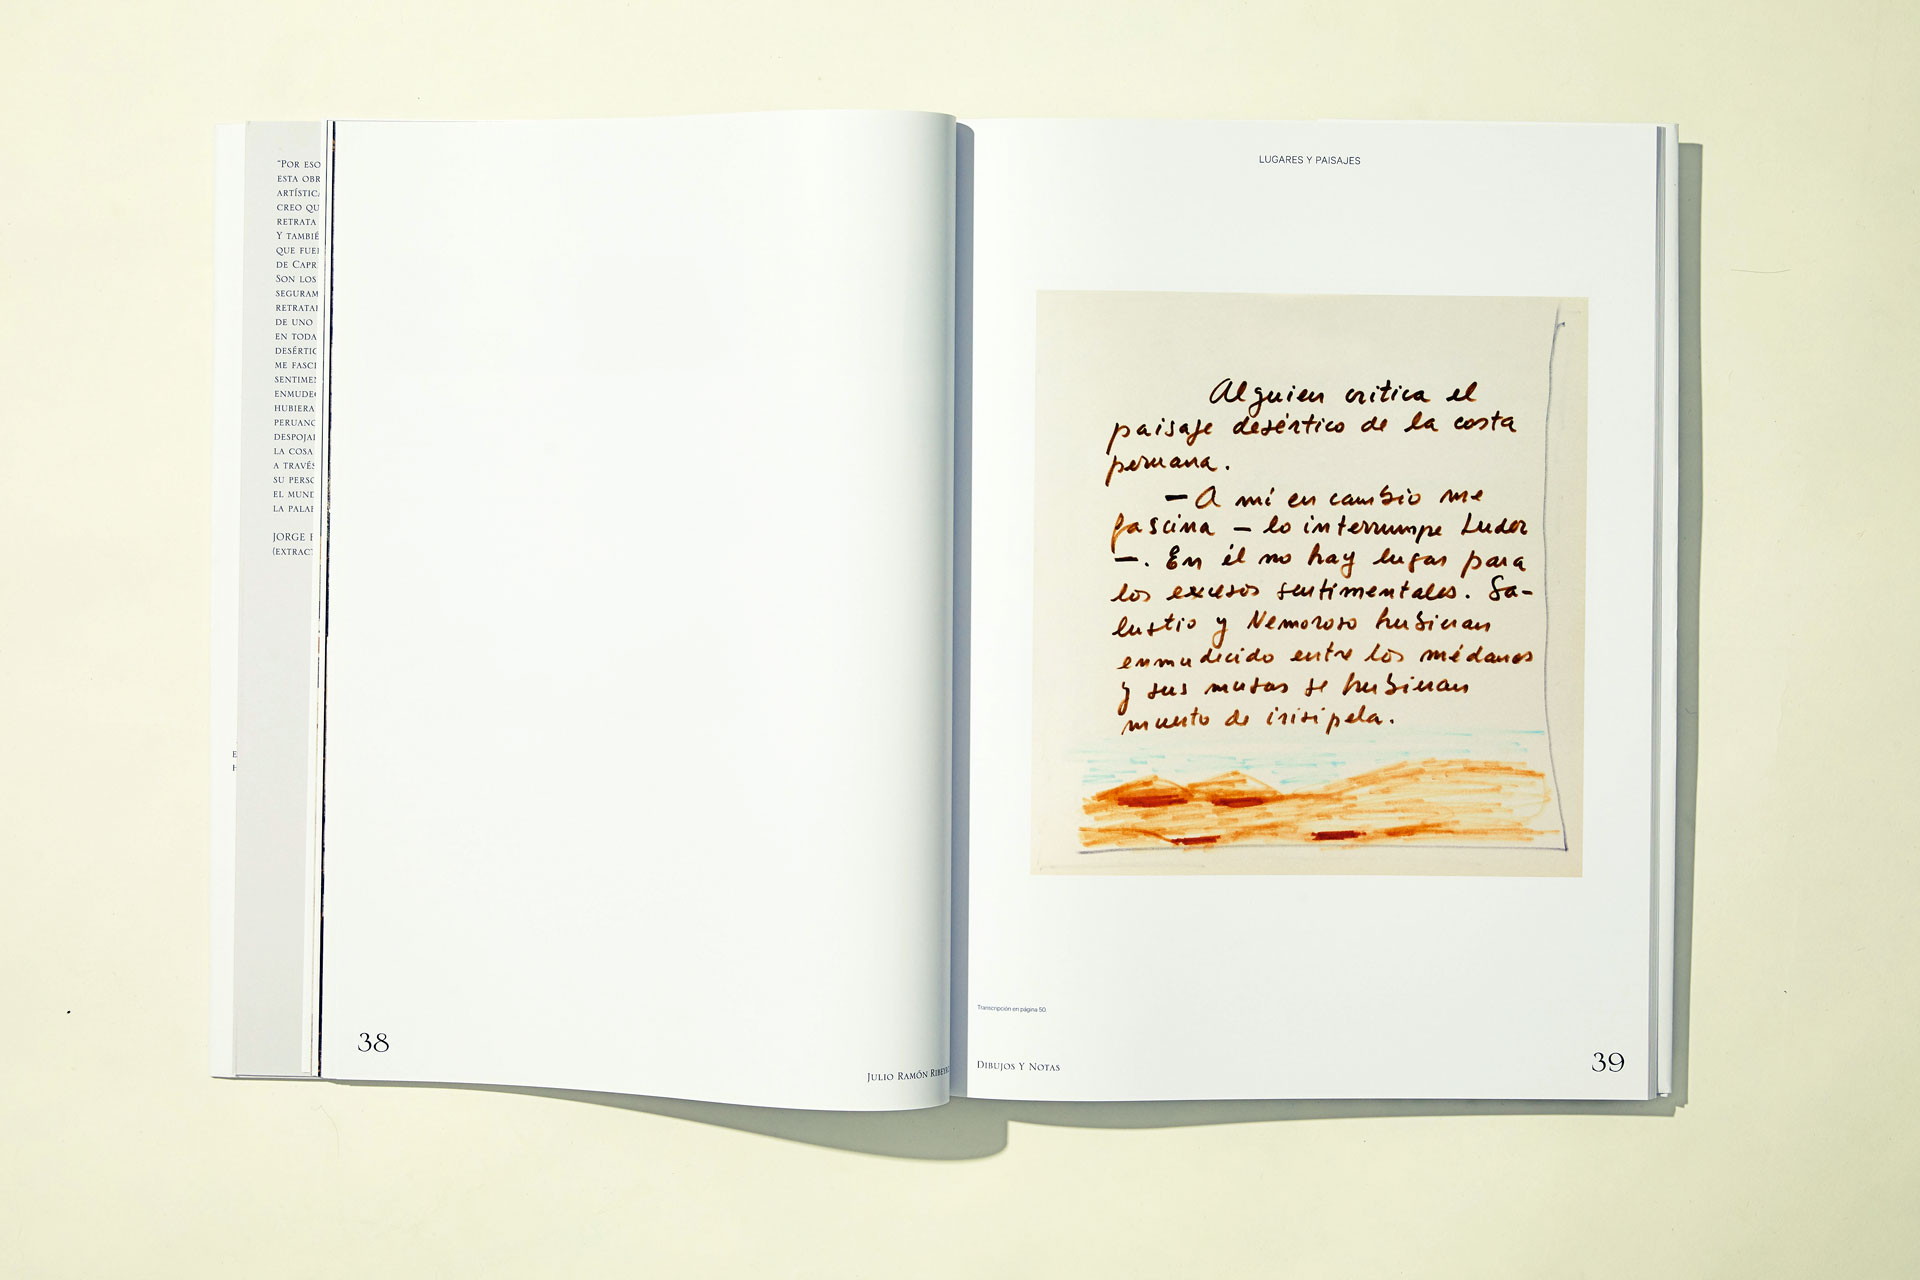 "POR ESO
ESTA OBR
ARTÍSTICA
CREO QU
RETRATA
Y TAMBIÉ
QUE FUE
DE CAPR
SON LOS
SEGURAM
RETRATA
DE UNO
EN TODA
DESÉRTIC
ME FASCI
SENTIME
ENMUDE
HUBIERA
PERUANO
DESPOJA
LA COSA
A TRAVÉS
SU PERSO
EL MUND
LA PALA
JORGE E
(EXTRACT
38
JULIO RAMÓN RIBEYRO
LUGARES Y PAISAJES
Alguien critica el
paisaje desértico de la costa
peruana.
— A mí en cambio me
fascina — lo interrumpe Luder
—. En él no hay lugar para
los excesos sentimentales. Sa-
lustio y Nemoroso hubieran
enmudecido entre los médanos
y sus musas se hubieran
muerto de irisipela.
Transcripción en página 50
DIBUJOS Y NOTAS
39